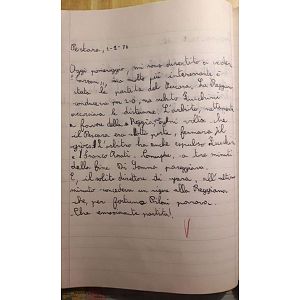 Pescara, 1-2-76
Oggi pomeriggio, mi sono divertito a veder
ma molto più interessante è
stata la partita del Pescara. La Reggiana
conduceva per 2-0, ma subito Zucchini
accorciava le distanze. L'arbitro, nettamente
a favore della Reggiana. Ogni volta che
il Pescara era alle porte, fermava il
gioco. L'arbitro ha anche espulso Zucchini
e Franco Prosperi a tre minuti
dalla fine Di Somma pareggiava.
E, il solito direttore di gara, all'ultimo
minuto concedeva un rigore alla Reggiana
che, per fortuna Piloni parava.
Che emozionante partita!